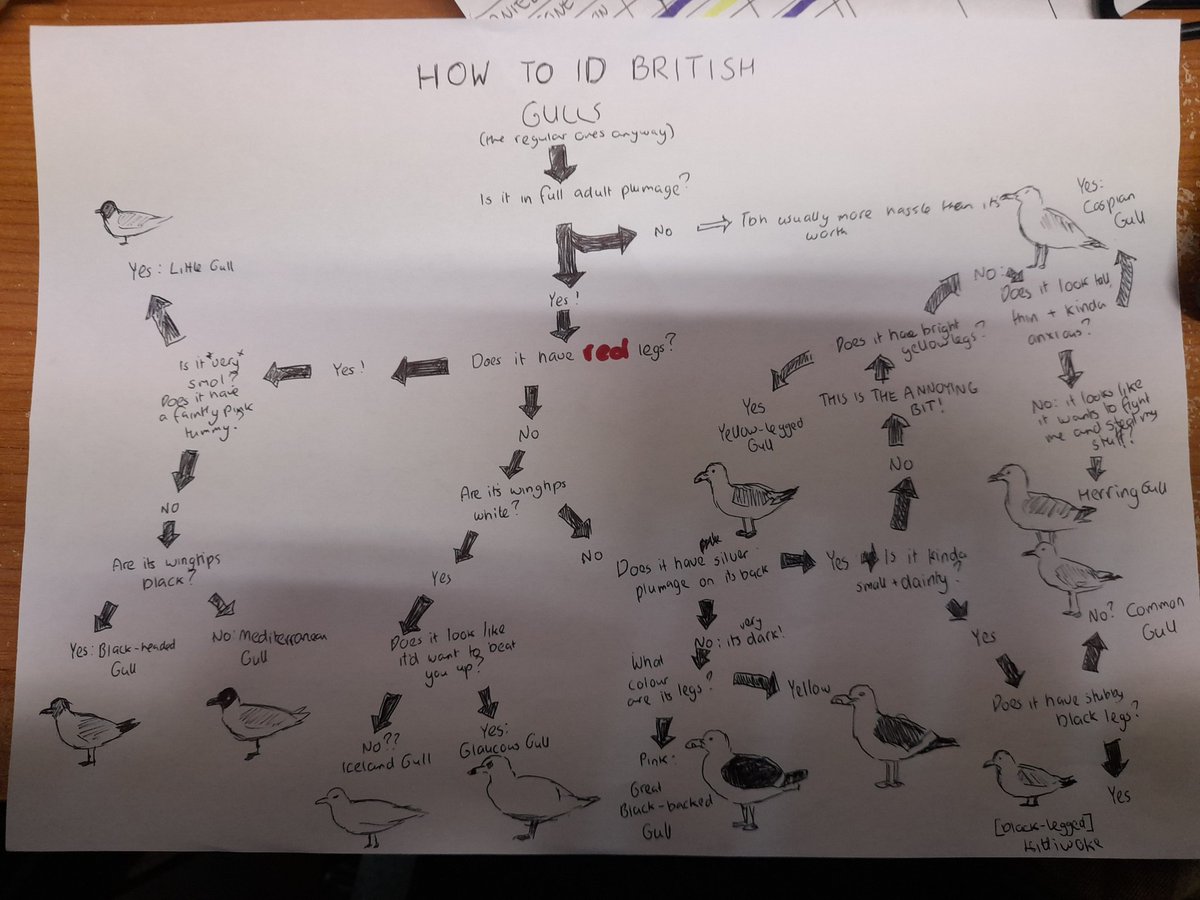 HOW TO ID BRITISH
GULLS
(the regular ones anyway)
Is it in full adult plumage?
No
Tbh usually more hassle than its
worth
Yes!
Does it have red legs?
Yes!
Is it *very*
smol?
Does it have
a faintly pink
tummy?
Yes: Little Gull
NO
Are its wingtips
black?
Yes: Black-headed
Gull
No: Mediterranean
Gull
No
Are it's wingtips
white?
Yes
Does it look like
it'd want to beat
you up?
No??
Iceland Gull
Yes:
Glaucous Gull
No
Does it have silver
plumage on its back
No: its very dark!
What
colour
are its legs?
Yellow
Pink:
Great
Black-backed
Gull
Yes
Is it kinda
small + dainty?
No
THIS IS THE ANNOYING
BIT!
Does it have bright
yellow legs?
Yes
Yellow-legged
Gull
No:
Does it look tall,
thin + kinda
anxious?
Yes:
Caspian
Gull
No: it looks like
it wants to fight
me and steal my
stuff?
Herring Gull
Yes
Does it have stubby
black legs?
No? Common
Gull
Yes
[black-legged]
kittiwake